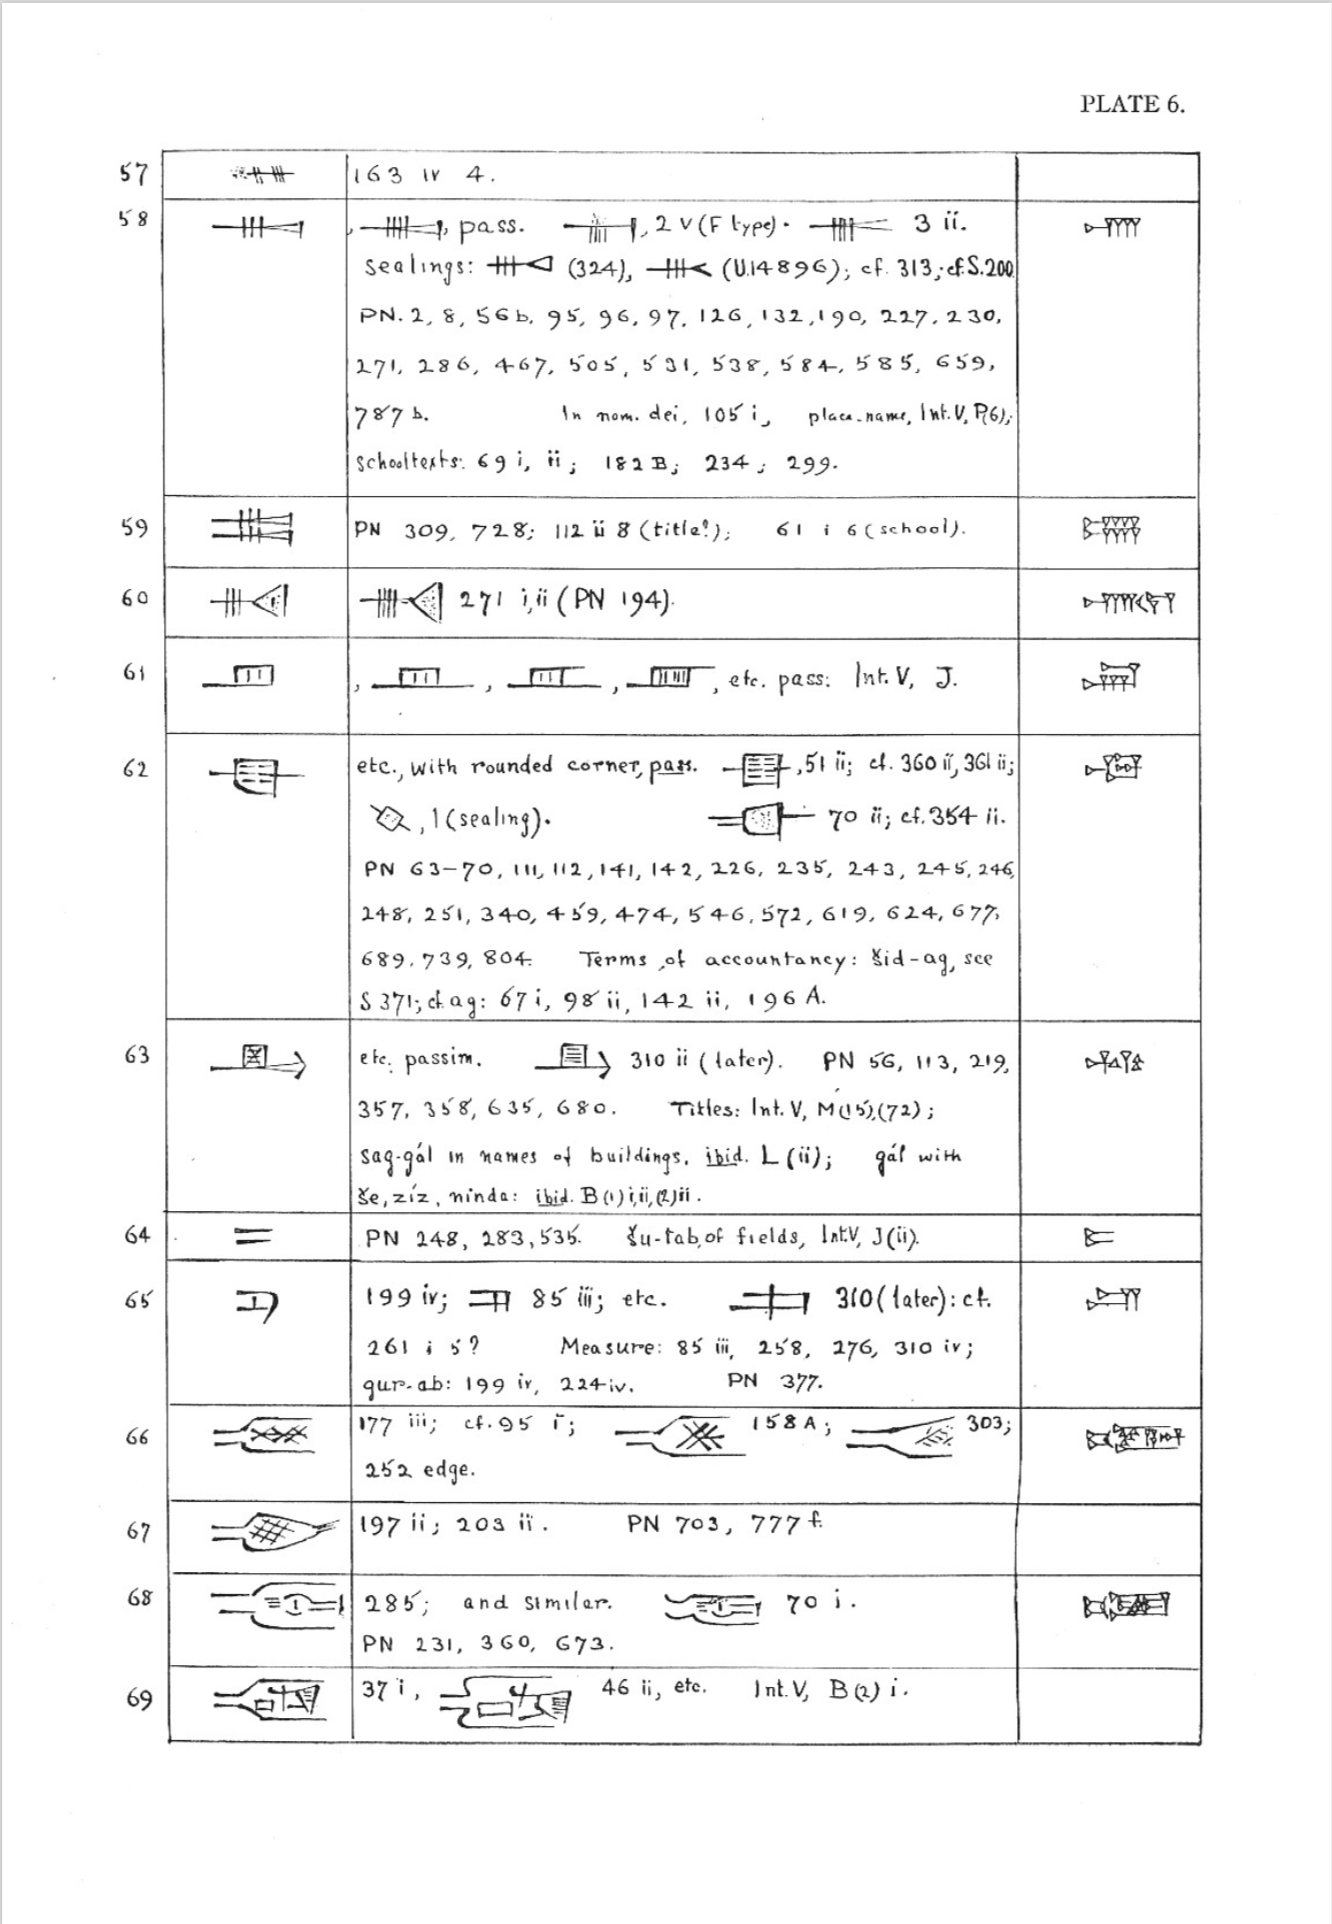 PLATE 6.
57 163 iv 4.
58 , , pass. , 2 v (F type). 3 ii.
sealings: (324), (U.14896); cf. 313; cf. S.200.
PN. 2, 8, 56b, 95, 96, 97, 126, 132, 190, 227, 230,
271, 286, 467, 505, 531, 538, 584, 585, 659,
787 b. In nom. dei, 105 i, place-name, Int. V, P(6);
schooltexts: 69 i, ii; 182 B; 234; 299.
59 PN 309, 728; 112 ii 8 (title?); 61 i 6 (school).
60 271 i, ii (PN 194).
61 , , , , etc. pass: Int. V, J.
62 etc., with rounded corner, pass. , 51 ii; cf. 360 ii, 361 ii;
, 1 (sealing). 70 ii; cf. 354 ii.
PN 63–70, 111, 112, 141, 142, 226, 235, 243, 245, 246,
248, 251, 340, 459, 474, 546, 572, 619, 624, 677,
689, 739, 804. Terms of accountancy: šid-ag, see
S 371; cf. ag: 67 i, 98 ii, 142 ii, 196 A.
63 etc. passim. 310 ii (later). PN 56, 113, 219,
357, 358, 635, 680. Titles: Int. V, M(15),(72);
sag-gál in names of buildings, ibid. L (ii); gál with
še, zíz, ninda: ibid. B (1) i, ii, (2) ii.
64 PN 248, 283, 535. šu-tab, of fields, Int. V, J (ii).
65 199 iv; 85 iii; etc. 310 (later): cf.
261 i 5? Measure: 85 iii, 258, 276, 310 iv;
gur-ab: 199 iv, 224 iv. PN 377.
66 177 iii; cf. 95 i; 158 A; 303;
252 edge.
67 197 ii; 203 ii. PN 703, 777 f.
68 285; and similar. 70 i.
PN 231, 360, 673.
69 37 i, 46 ii, etc. Int. V, B (2) i.